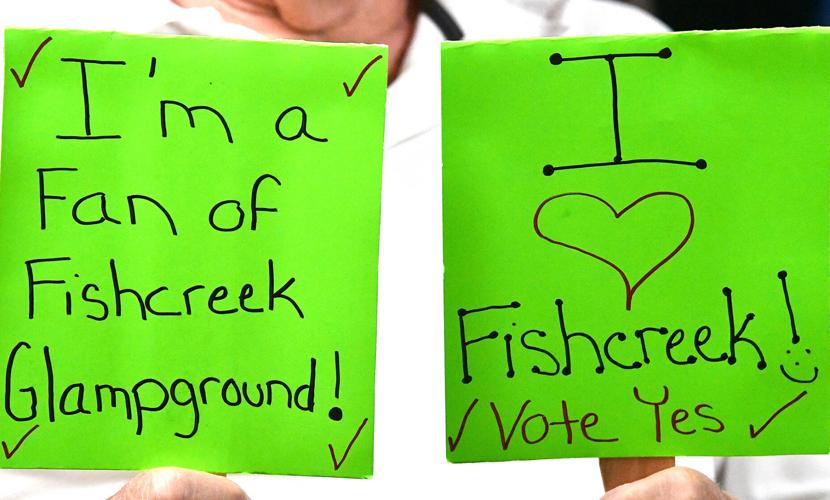 I'm a
Fan of
Fishcreek
Glampground!
I
♡
Fishcreek!
Vote Yes